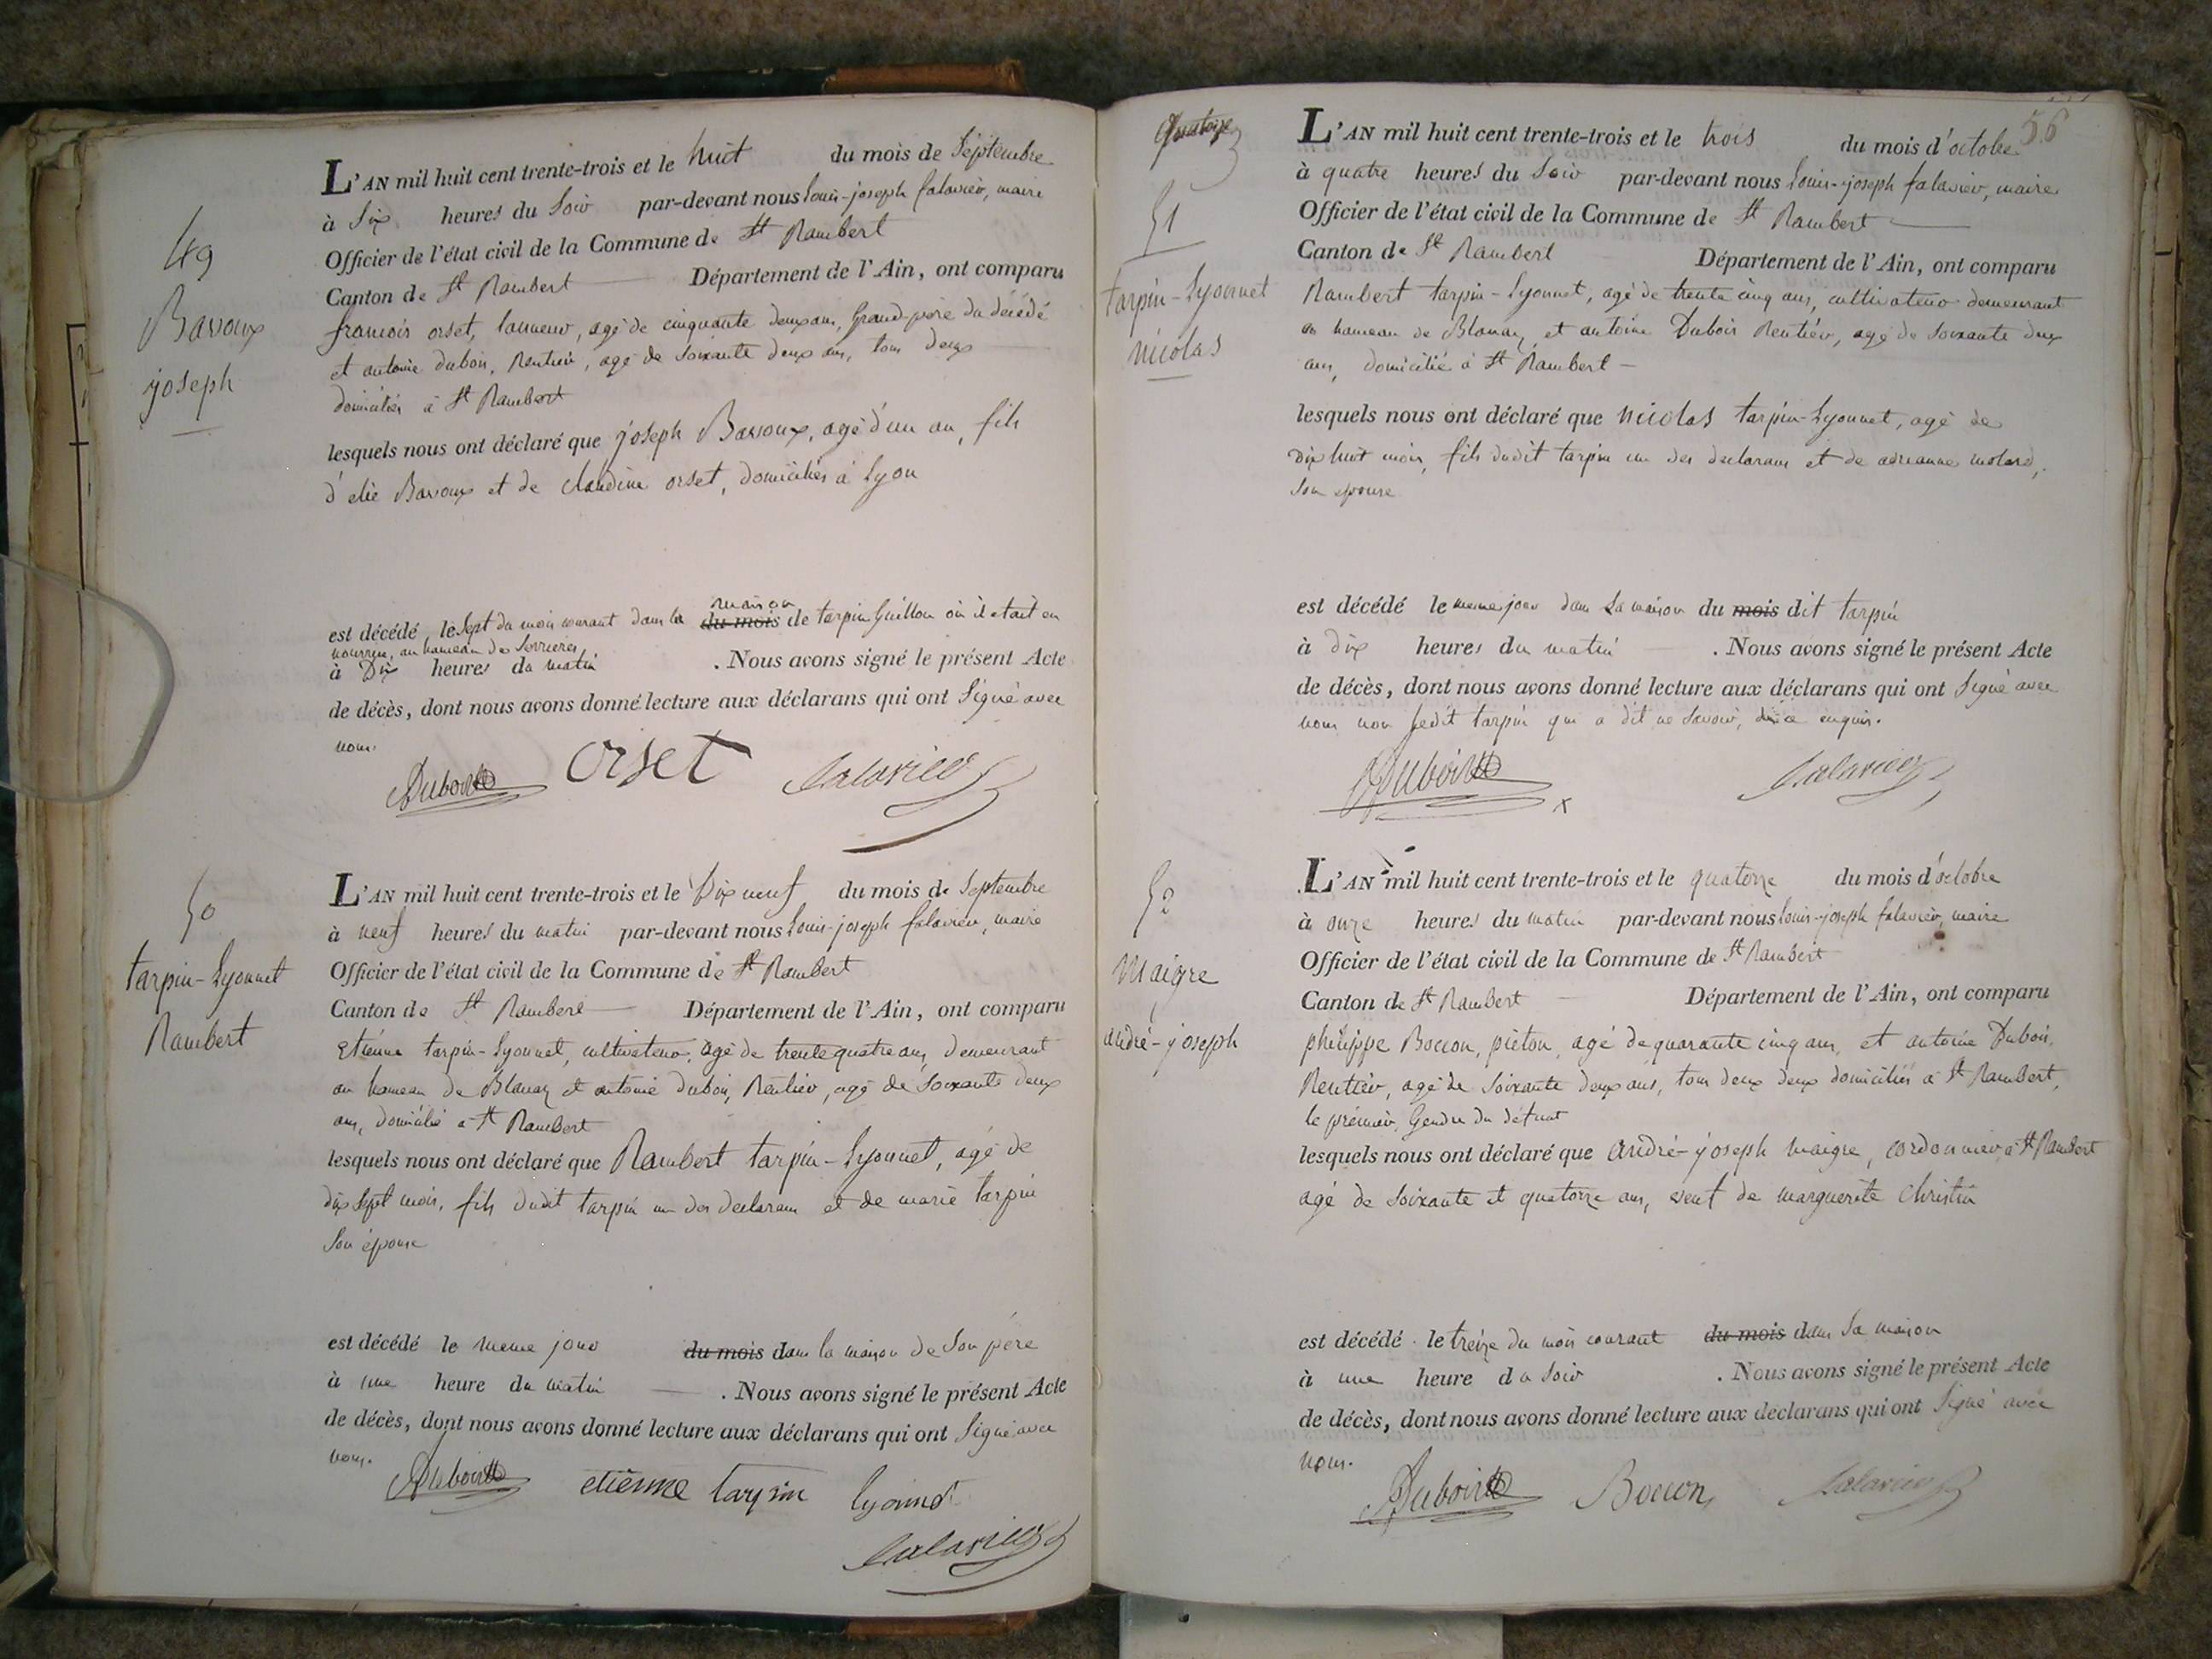 49
Bavoux
joseph
L'AN mil huit cent trente-trois et le huit du mois de Septembre
à Six heures du Soir par-devant nous Louis-joseph falavier, maire
Officier de l'état civil de la Commune de St Rambert
Canton de St Rambert Département de l'Ain, ont comparu
francois orset, tanneur, agé de cinquante deux ans, Grand-père du décédé
et antoine dubois, Rentier, agé de Soixante deux ans, tous deux
domiciliés à St Rambert
lesquels nous ont déclaré que joseph Bavoux, agé d'un an, fils
d'elie Bavoux et de claudine orset, domiciliés à Lyon
maison
est décédé, le Sept du mois courant dans la du mois de tarpin Guillon où il etait en
nourrice, au hameau de Serrieres,
à Dix heures du matin . Nous avons signé le présent Acte
de décès, dont nous avons donné lecture aux déclarans qui ont Signé avec
nous.
Dubois orset falavier
50
tarpin-Lyonnet
Rambert
L'AN mil huit cent trente-trois et le Dix neuf du mois de Septembre
à neuf heures du matin par-devant nous Louis-joseph falavier, maire
Officier de l'état civil de la Commune de St Rambert
Canton de St Rambert Département de l'Ain, ont comparu
Etienne tarpin-Lyonnet, cultivateur, agé de trente quatre ans, demeurant
au hameau de Blanaz et antoine dubois, Rentier, agé de Soixante deux
ans, domicilié a St Rambert
lesquels nous ont déclaré que Rambert tarpin-Lyonnet, agé de
dix Sept mois, fils dudit tarpin un des declarans et de marie tarpin
Son épouse
est décédé le meme jour du mois dans la maison de Son père
à une heure du matin . Nous avons signé le présent Acte
de décès, dont nous avons donné lecture aux déclarans qui ont Signé avec
nous.
Dubois etienne tarpin lyonnet
falavier
56
quatorze
51
tarpin-Lyonnet
nicolas
L'AN mil huit cent trente-trois et le trois du mois d'octobre
à quatre heures du Soir par-devant nous Louis-joseph falavier, maire
Officier de l'état civil de la Commune de St Rambert
Canton de St Rambert Département de l'Ain, ont comparu
Rambert tarpin-Lyonnet, agé de trente cinq ans, cultivateur demeurant
au hameau de Blanaz, et antoine Dubois Rentier, agé de Soixante deux
ans, domicilié à St Rambert
lesquels nous ont déclaré que nicolas tarpin-Lyonnet, agé de
Dix huit mois, fils dudit tarpin un des declarans et de adrianne molard,
Son epouse
est décédé le meme jour dans la maison du mois dit tarpin
à dix heures du matin . Nous avons signé le présent Acte
de décès, dont nous avons donné lecture aux déclarans qui ont Signé avec
nous non ledit tarpin qui a dit ne Savoir, de ce enquis.
Dubois falavier
52
Maigre
andré-joseph
L'AN mil huit cent trente-trois et le quatorze du mois d'octobre
à onze heures du matin par-devant nous Louis-joseph falavier, maire
Officier de l'état civil de la Commune de St Rambert
Canton de St Rambert Département de l'Ain, ont comparu
philippe Boccon, piéton, agé de quarante cinq ans, et antoine Dubois,
Rentier, agé de Soixante deux ans, tous deux deux domiciliés à St Rambert,
le prémier, Gendre du défunt
lesquels nous ont déclaré que andré-joseph maigre, cordonnier à St Rambert
agé de Soixante et quatorze ans, veuf de marguerite Christin
est décédé le treize du mois courant du mois dans Sa maison
à une heure du Soir . Nous avons signé le présent Acte
de décès, dont nous avons donné lecture aux déclarans qui ont Signé avec
nous.
Dubois Boccon falavier